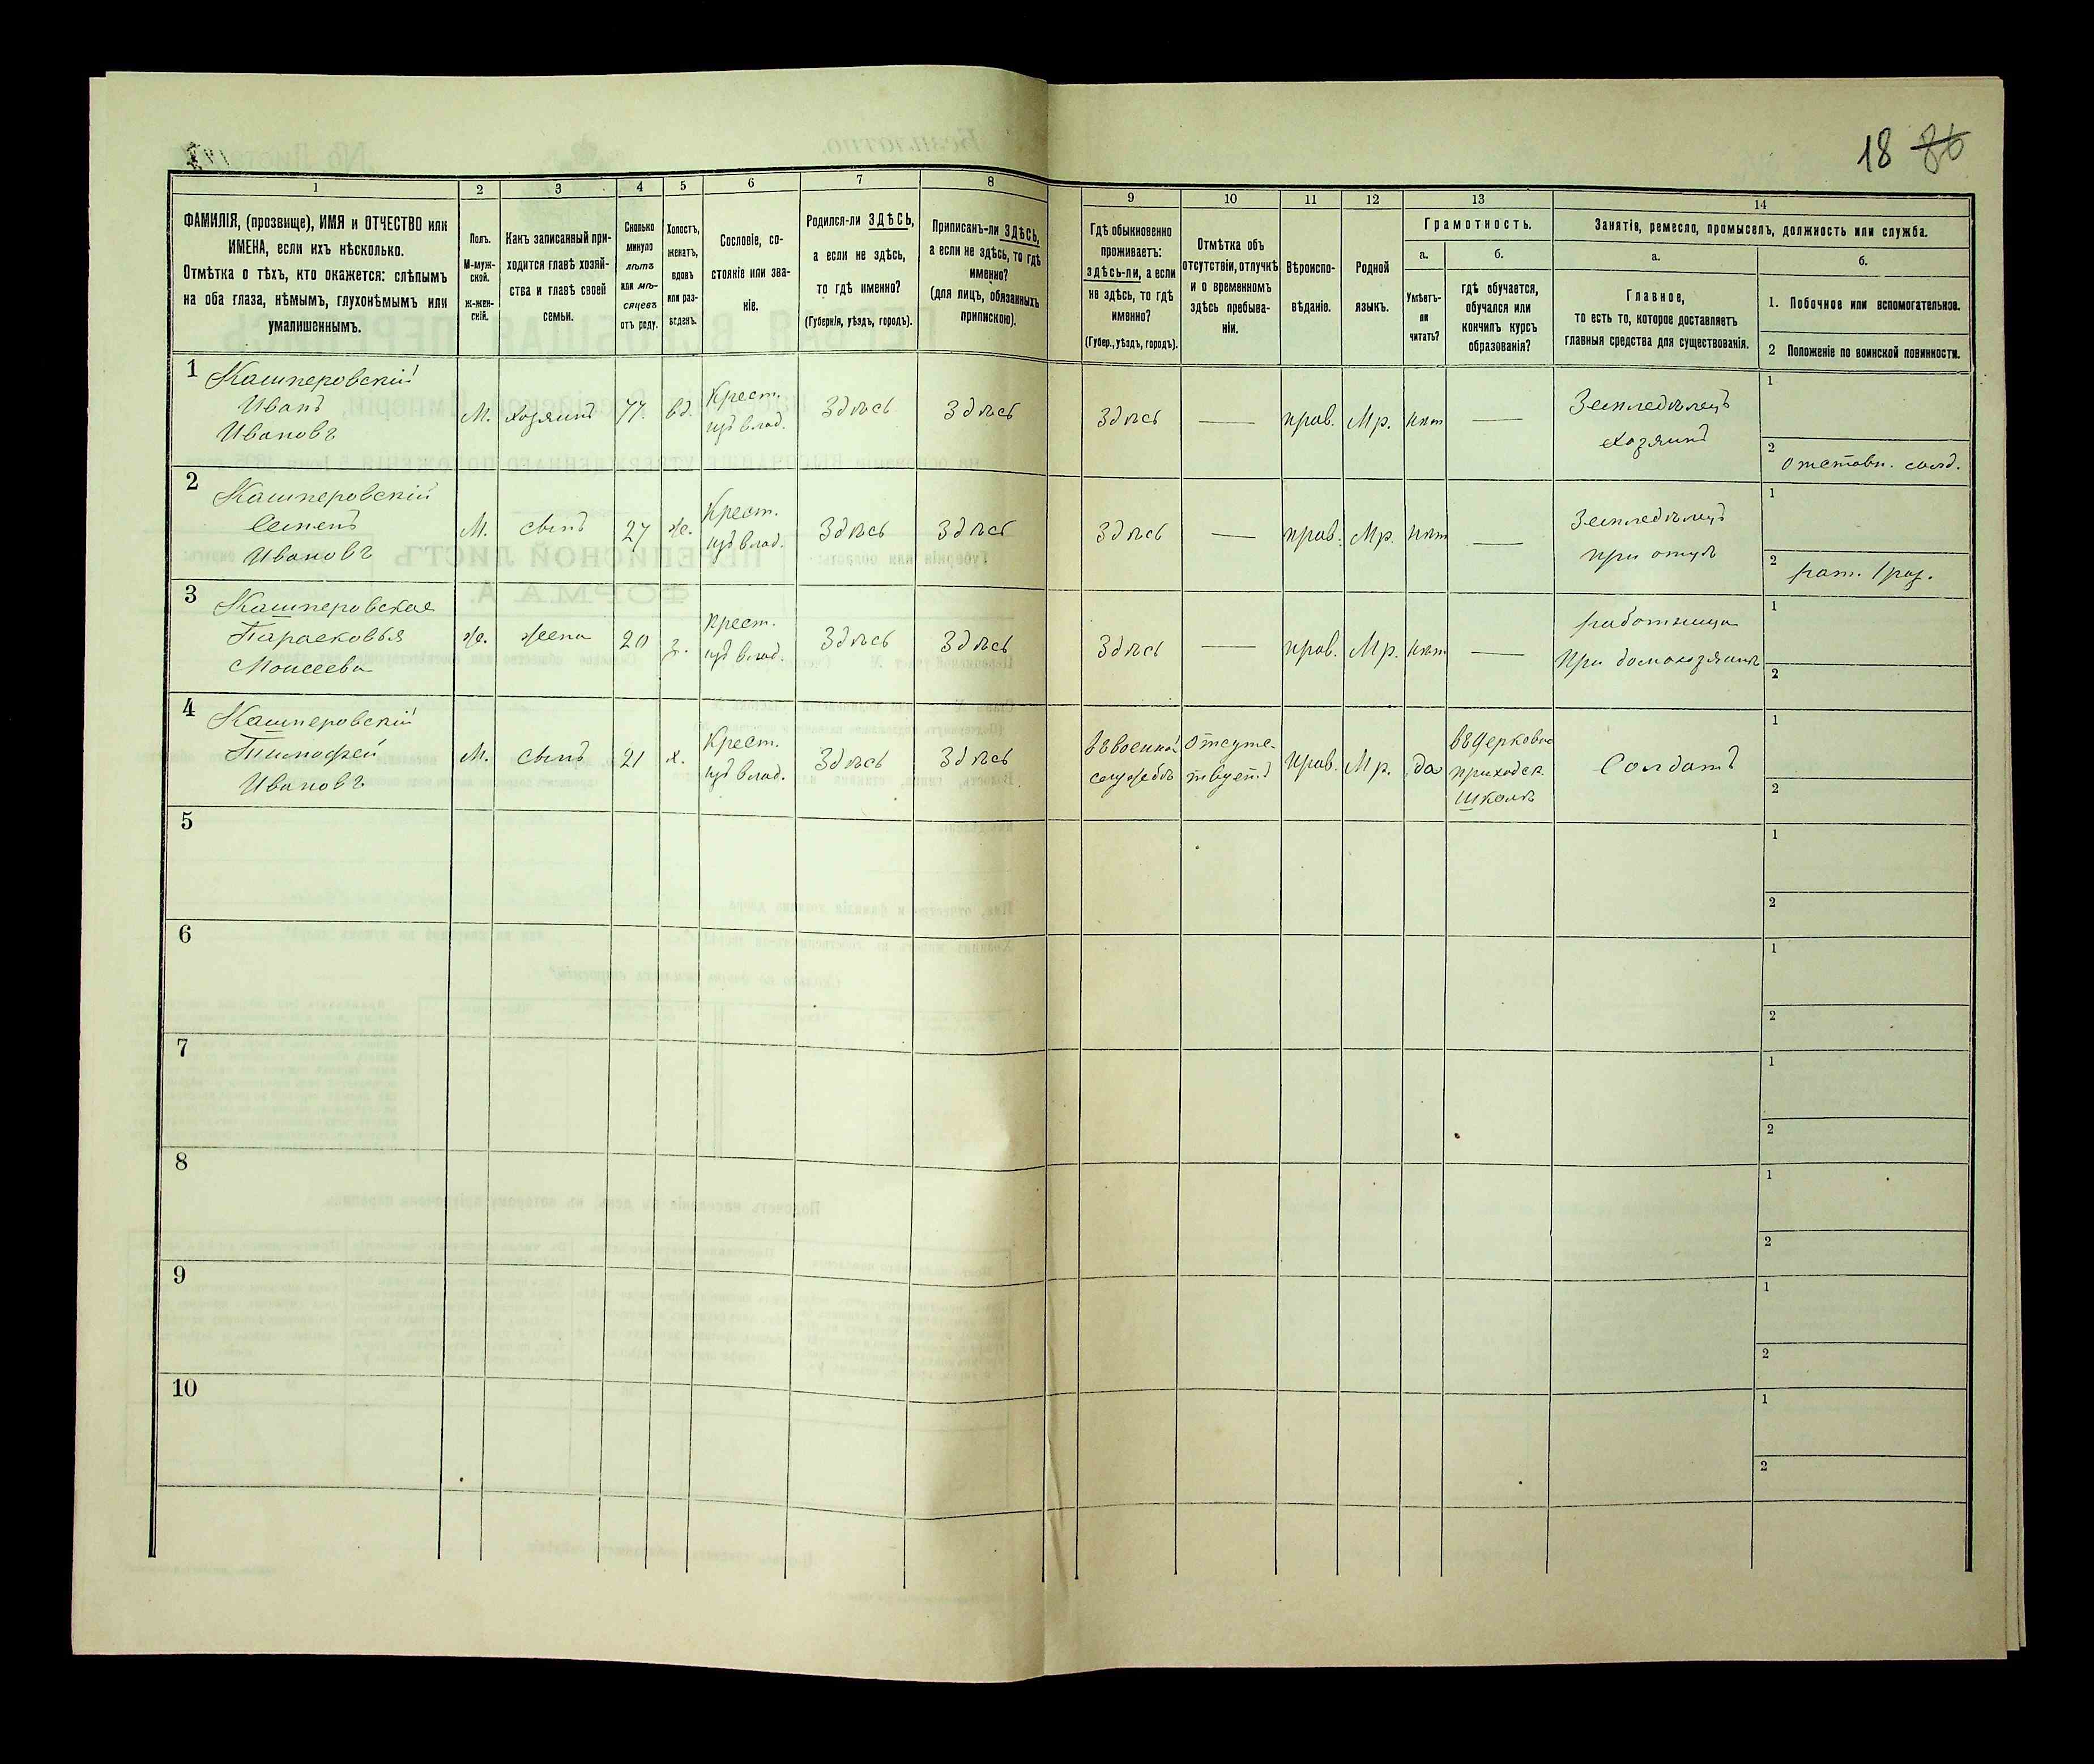 18 86
1
2
3
4
5
6
7
8
9
10
11
12
13
14
ФАМИЛІЯ, (прозвище), ИМЯ и ОТЧЕСТВО или
ИМЕНА, если ихъ нѣсколько.
Отмѣтка о тѣхъ, кто окажется: слѣпымъ
на оба глаза, нѣмымъ, глухонѣмымъ или
умалишеннымъ.
Полъ.
М-муж-
ской.
ж-жен-
скій.
Какъ записанный при-
ходится главѣ хозяй-
ства и главѣ своей
семьи.
Сколько
минуло
лѣтъ
или мѣ-
сяцевъ
отъ роду.
Холостъ,
женатъ,
вдовъ
или раз-
веденъ.
Сословіе, со-
стояніе или зва-
ніе.
Родился-ли ЗДѢСЬ,
а если не здѣсь,
то гдѣ именно?
(Губернія, уѣздъ, городъ).
Приписанъ-ли ЗДѢСЬ,
а если не здѣсь, то гдѣ
именно?
(для лицъ, обязанныхъ
припискою).
Гдѣ обыкновенно
проживаетъ:
здѣсь-ли, а если
не здѣсь, то гдѣ
именно?
(Губер., уѣздъ, городъ).
Отмѣтка объ
отсутствіи, отлучкѣ
и о временномъ
здѣсь пребыва-
ніи.
Вѣроиспо-
вѣданіе.
Родной
языкъ.
Грамотность.
а.
Умѣетъ-
ли
читать?
б.
гдѣ обучается,
обучался или
кончилъ курсъ
образованія?
Занятія, ремесло, промыселъ, должность или служба.
а.
Главное,
то есть то, которое доставляетъ
главныя средства для существованія.
б.
1. Побочное или вспомогательное.
2 Положеніе по воинской повинности.
1 Кашперовскій
Иванъ
Ивановъ
М.
хозяинъ
77.
вд.
Крест.
изъ влад.
Здѣсь
Здѣсь
Здѣсь
—
прав.
Мр.
нѣт
—
Земледѣлецъ
хозяинъ
1
2
Отставн. солд.
2 Кашперовскій
Семенъ
Ивановъ
М.
сынъ
27
ж.
Крест.
изъ влад.
Здѣсь
Здѣсь
Здѣсь
—
прав.
Мр.
нѣт
—
Земледѣлецъ
при отцѣ
1
2
рат. 1 раз.
3 Кашперовская
Парасковья
Моисеева
ж.
жена
20
з.
Крест.
изъ влад.
Здѣсь
Здѣсь
Здѣсь
—
прав.
Мр.
нѣт
—
работница
при домохозяинѣ
1
2
4 Кашперовскій
Тимофей
Ивановъ
М.
сынъ
21
х.
Крест.
изъ влад.
Здѣсь
Здѣсь
въ военной
службѣ
Отсутс-
твуетъ
прав.
Мр.
да
въ Церковно
приходск.
школѣ
Солдатъ
1
2
5
1
2
6
1
2
7
1
2
8
1
2
9
1
2
10
1
2